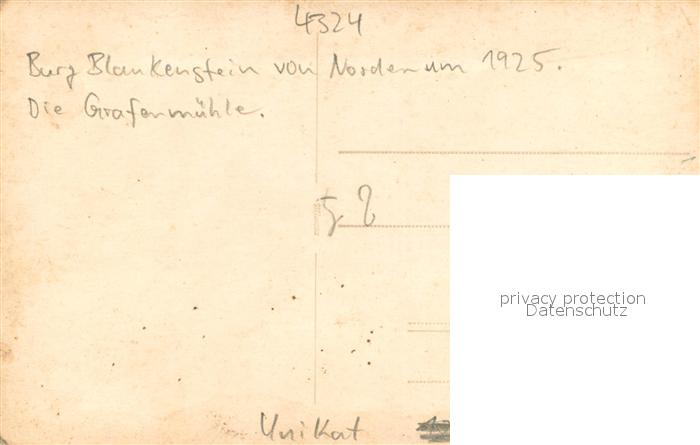 4324
Burg Blankenstein von Norden um 1925.
Die Grafenmühle.
privacy protection
Datenschutz
Unikat